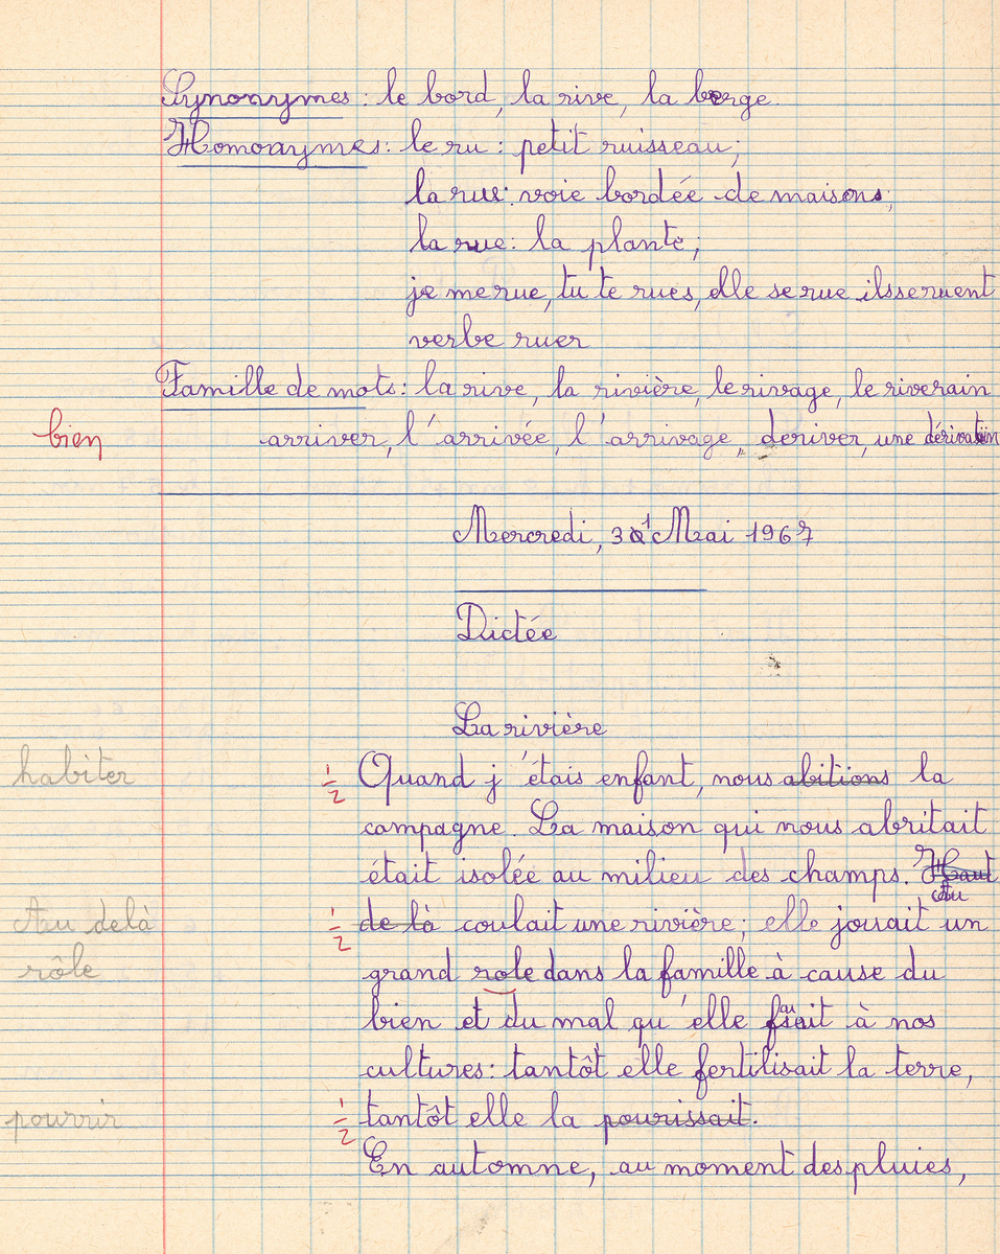 Synonymes : le bord, la rive, la berge.
Homonymes : le ru : petit ruisseau ;
la rue : voie bordée de maisons ;
la rue : la plante ;
je me rue, tu te rues, elle se rue ils se ruent
verbe ruer
Famille de mots : la rive, la rivière, le rivage, le riverain
bien arriver, l'arrivée, l'arrivage, deriver, une dérivation
Mercredi, 31 Mai 1967
Dictée
La rivière
habiter ½ Quand j'étais enfant, nous abitions la
campagne. La maison qui nous abritait
était isolée au milieu des champs. Haut
Au
Au delà ½ de là coulait une rivière ; elle jouait un
rôle grand role dans la famille à cause du
bien et du mal qu'elle faisait à nos
cultures : tantôt elle fertilisait la terre,
pourrir ½ tantôt elle la pourissait.
En automne, au moment des pluies,